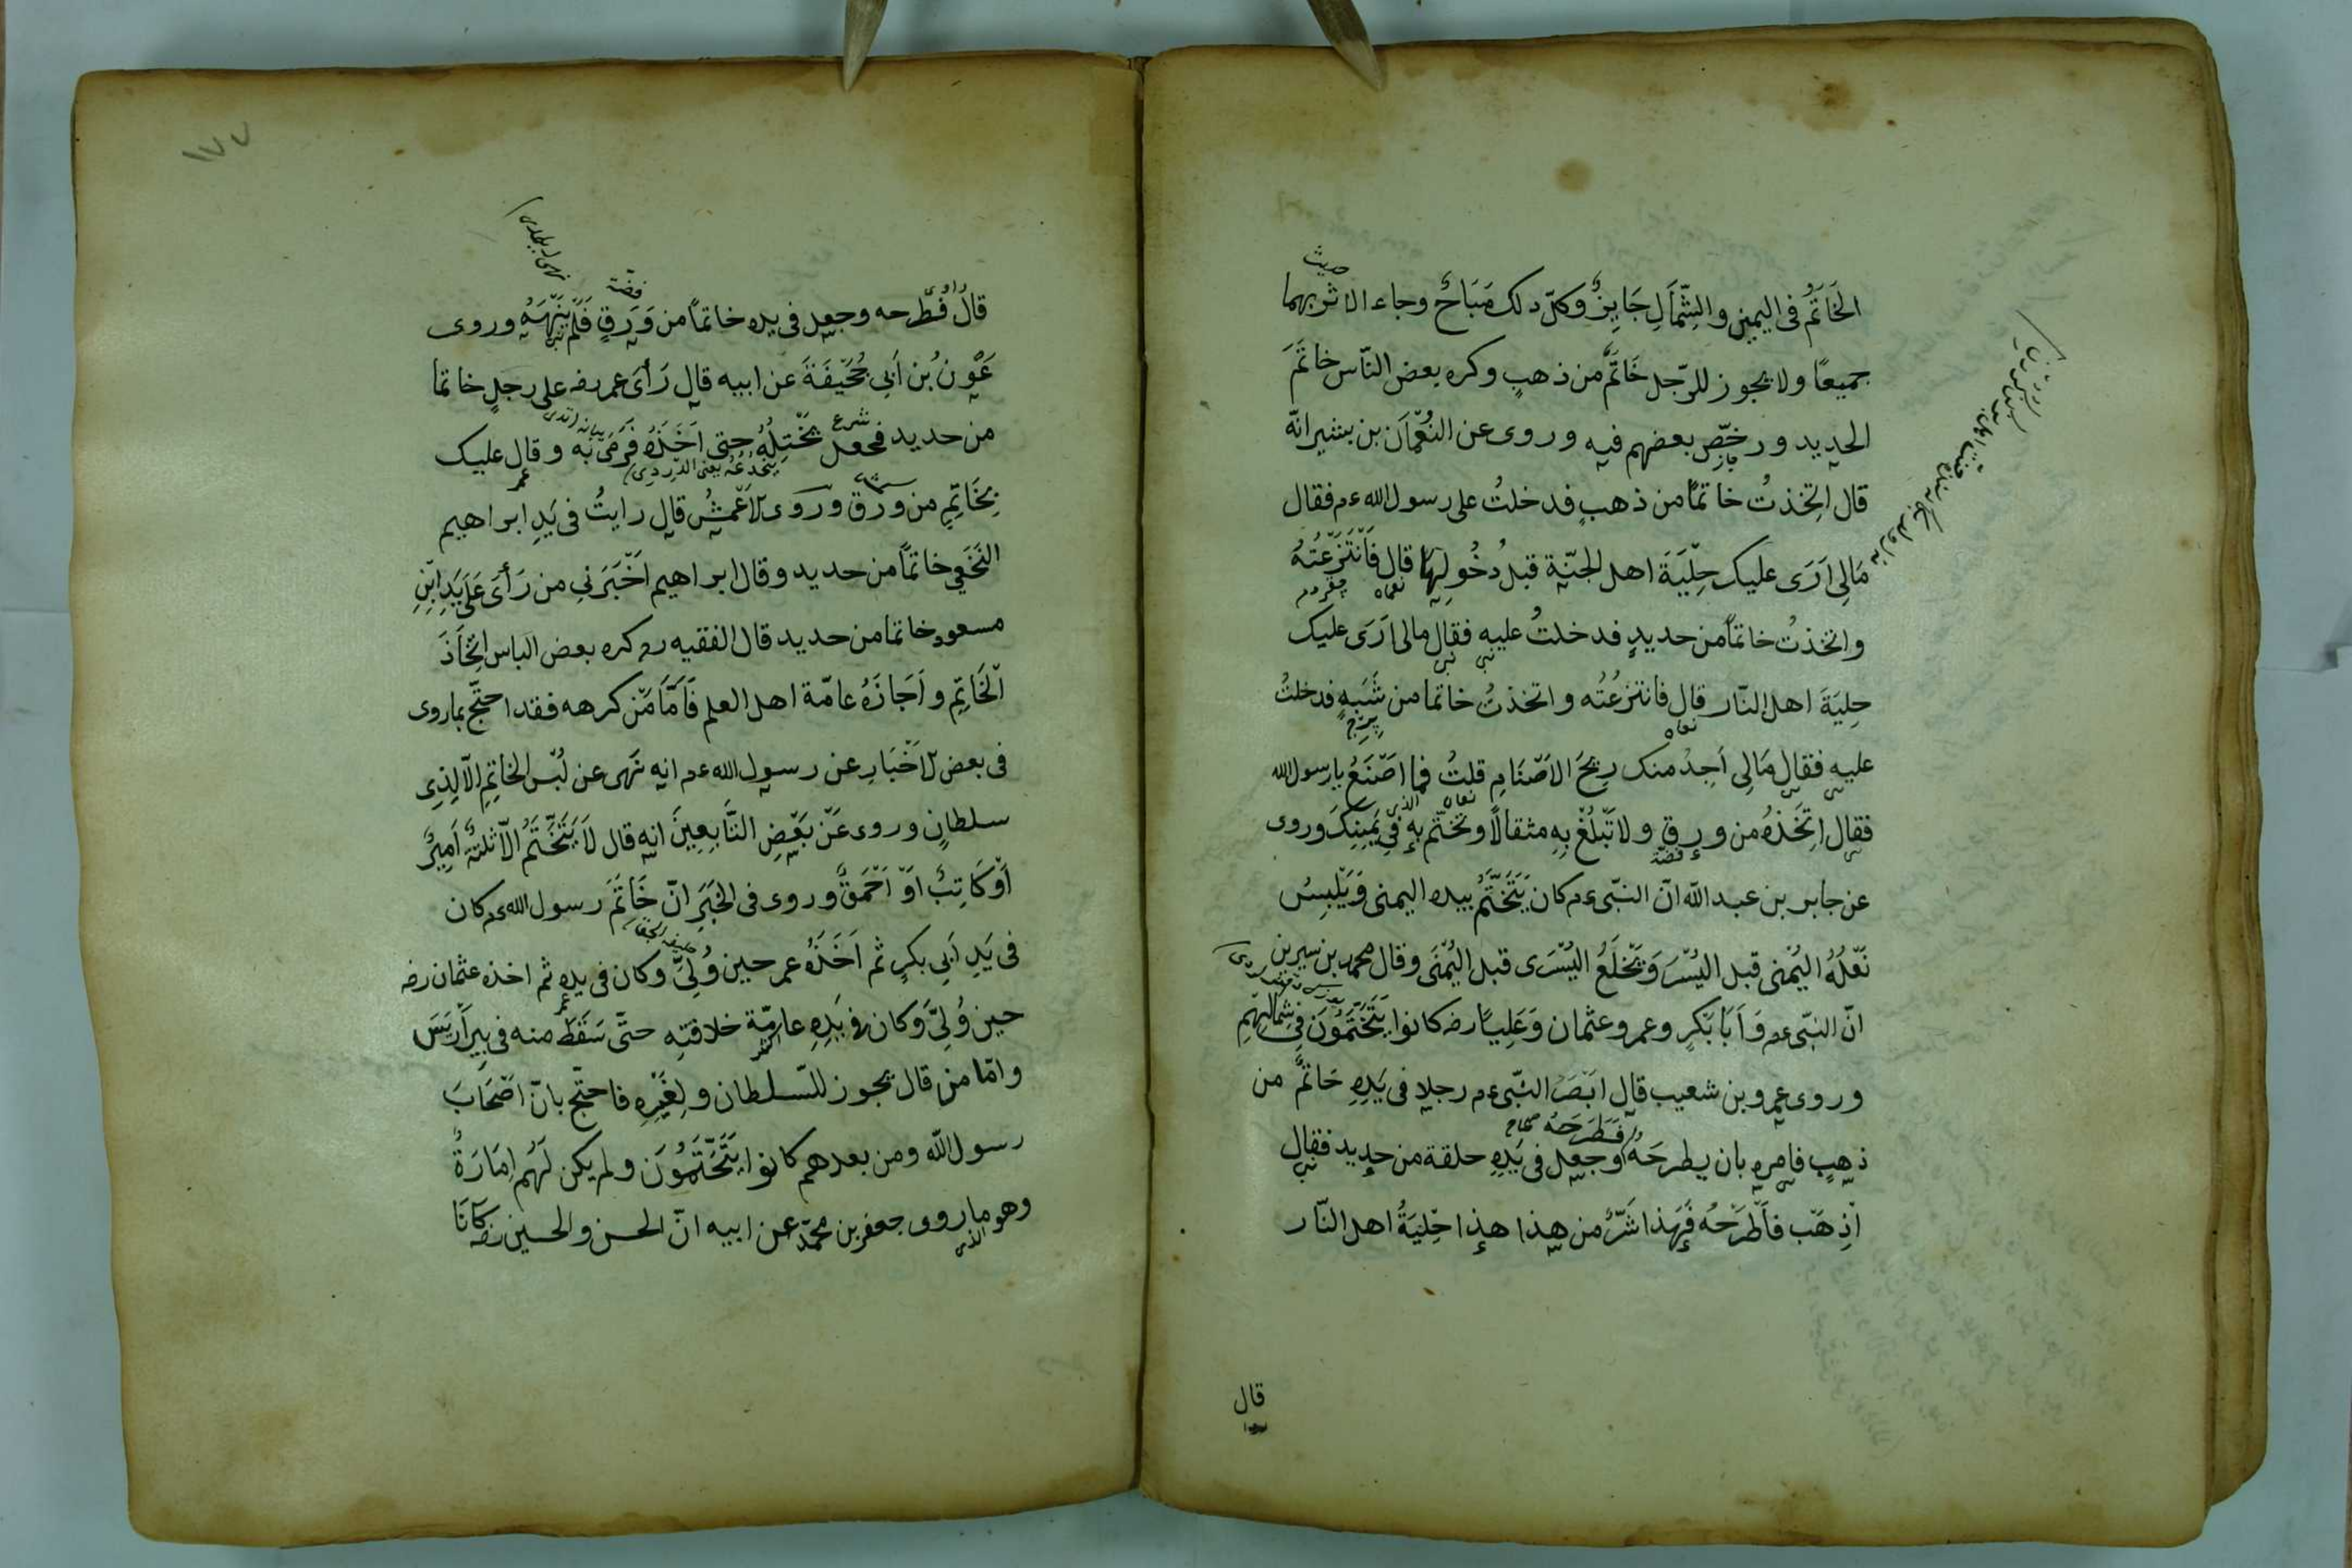 الخَاتَمُ فى اليمين والشِّمَالِ جَايِزٌ وكلّ ذلك مُبَاحٌ وجاء الاثر بهما
حديث
جميعًا ولا يجوز للرّجل خَاتَمٌ من ذهبٍ وكره بعض النّاس خاتَمَ
الحديد ورخّص بعضهم فيه وروى عن النُّعْمَان بن بشير انّه
قال اتّخذتُ خاتمًا من ذهبٍ فدخلتُ على رسول الله عم فقال
مَالِى اَرَى عليك حِلْيَةَ اهل الجنّة قبل دُخُولِهَا قال فَانْتَزَعْتُهُ
واتخذتُ خاتمًا من حديدٍ فدخلتُ عليه فقال مالى اَرَى عليك
حِليَةَ اهل النّار قال فانتزعْتُه واتخذتُ خاتما من شَبَهٍ فدخلتُ
عليه فقال مَالِى اَجِدُ منك رِيحَ الاَصْنَامِ قلتُ فما اصْنَعُ يا رسول الله
فقال اتَّخِذْهُ من وَرِقٍ ولا تَبْلُغْ بِهِ مثقالاً وتختّم بِهِ فِى يَمِينِكَ وروى
فضّة
عن جابر بن عبد الله انّ النّبى عم كان يَتَخَتَّمُ بيده اليمنى وَيَلْبِسُ
نَعْلَهُ اليُمْنى قبل اليُسْرَى وَيَخْلَعُ اليُسْرَى قبل اليُمْنَى وقال محمد بن سيرين
انّ النبّى عم وَاَبَا بَكْرٍ وعمر وعثمان وَعَلِيًا رضه كانوا يَتَخَتَّمُونَ فِى شِمَالِهِم
وروى عمرو بن شعيب قال ابْصَرَ النّبى عم رجلا فى يَدِهِ خَاتَمٌ من
ذهبٍ فامره بان يطرحَهُ فَطَرَحَهُ وجعل فى يَدِهِ حلقة من حديد فقال
اِذْهَبْ فَاطْرَحْهُ فَهَذا شَرٌّ من هذا هذا حِلْيَةُ اهل النّار
قال
١٧٧
راوى
فضّة
قال فطرحه وجعل فى يده خاتمًا من وَرِقٍ فَلَمْ يَنْهَهُ وروى
عَوْنُ بْن اَبِى جُحَيْفَةَ عن ابيه قال رَأى عمر رضه على رجلٍ خاتما
من حديد فجعل يَخْتِلُهُ حتى اَخَذَهُ فَرَمَى به وقال عليك
شرع
بِخَاتِمٍ من وَرِقٍ وروى الاَعْمَشُ قال رايتُ فى يَدِ ابراهيم
النَخَعِى خاتمًا من حديد وقال ابراهيم اَخْبَرَنِى من رَأَى عَلَى يَدِ ابْنِ
مسعود خاتما من حديد قال الفقيه ره كره بعض الناس اتِّخَاذَ
الْخَاتِمِ واَجَازَهُ عامّة اهل العلم فَاَمَّا مَنْ كرهه فقد احتجّ بما روى
فى بعض الاَخْبَارِ عن رسول الله عم انه نَهى عن لُبْسِ الخاتِمِ الّا لِذِى
سلطانٍ وروى عَنْ بَعْضِ التَّابِعِينَ انه قال لَا يَتَخَتَّمُ الّا ثلثةٌ اَمِيرٌ
اَوْ كَاتِبٌ اَوْ اَحْمَقٌ وروى فى الخَبَرِ انّ خَاتَمَ رسول الله عم كان
فى يَدِ اَبِى بكرٍ ثم اَخَذَهُ عمر حين وُلِىَّ وكان فى يده ثم اخذه عثمان رضه
حين وُلِىَّ وَكان فى يَدِهِ عامّة خلافتِه حتَّى سَقَطَ منه فى بِيرِ اَرِيسَ
وامّا من قال يجوز للسّلطان ولِغَيْرِهِ فاحتجّ بانّ اَصْحَابَ
رسول الله ومن بعدهم كانوا يَتَخَتَّمُونَ ولم يكن لَهُم اِمَارَةٌ
وهو ما روى جعفر بن محمّد عن ابيه انّ الحسن والحسين رضه كَانَا